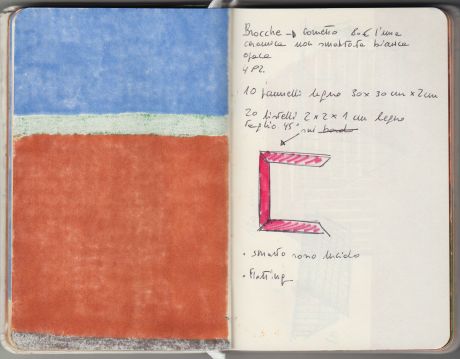 Brocche → Cometa 6x€ l'una
ceramica non smaltata bianca
opaca
4 PZ.
10 pannelli legno 30x30 cm x 2cm
20 listelli 2x2x1 cm legno
taglio 45° sui bordo
• smalto rosso lucido
• Flatting